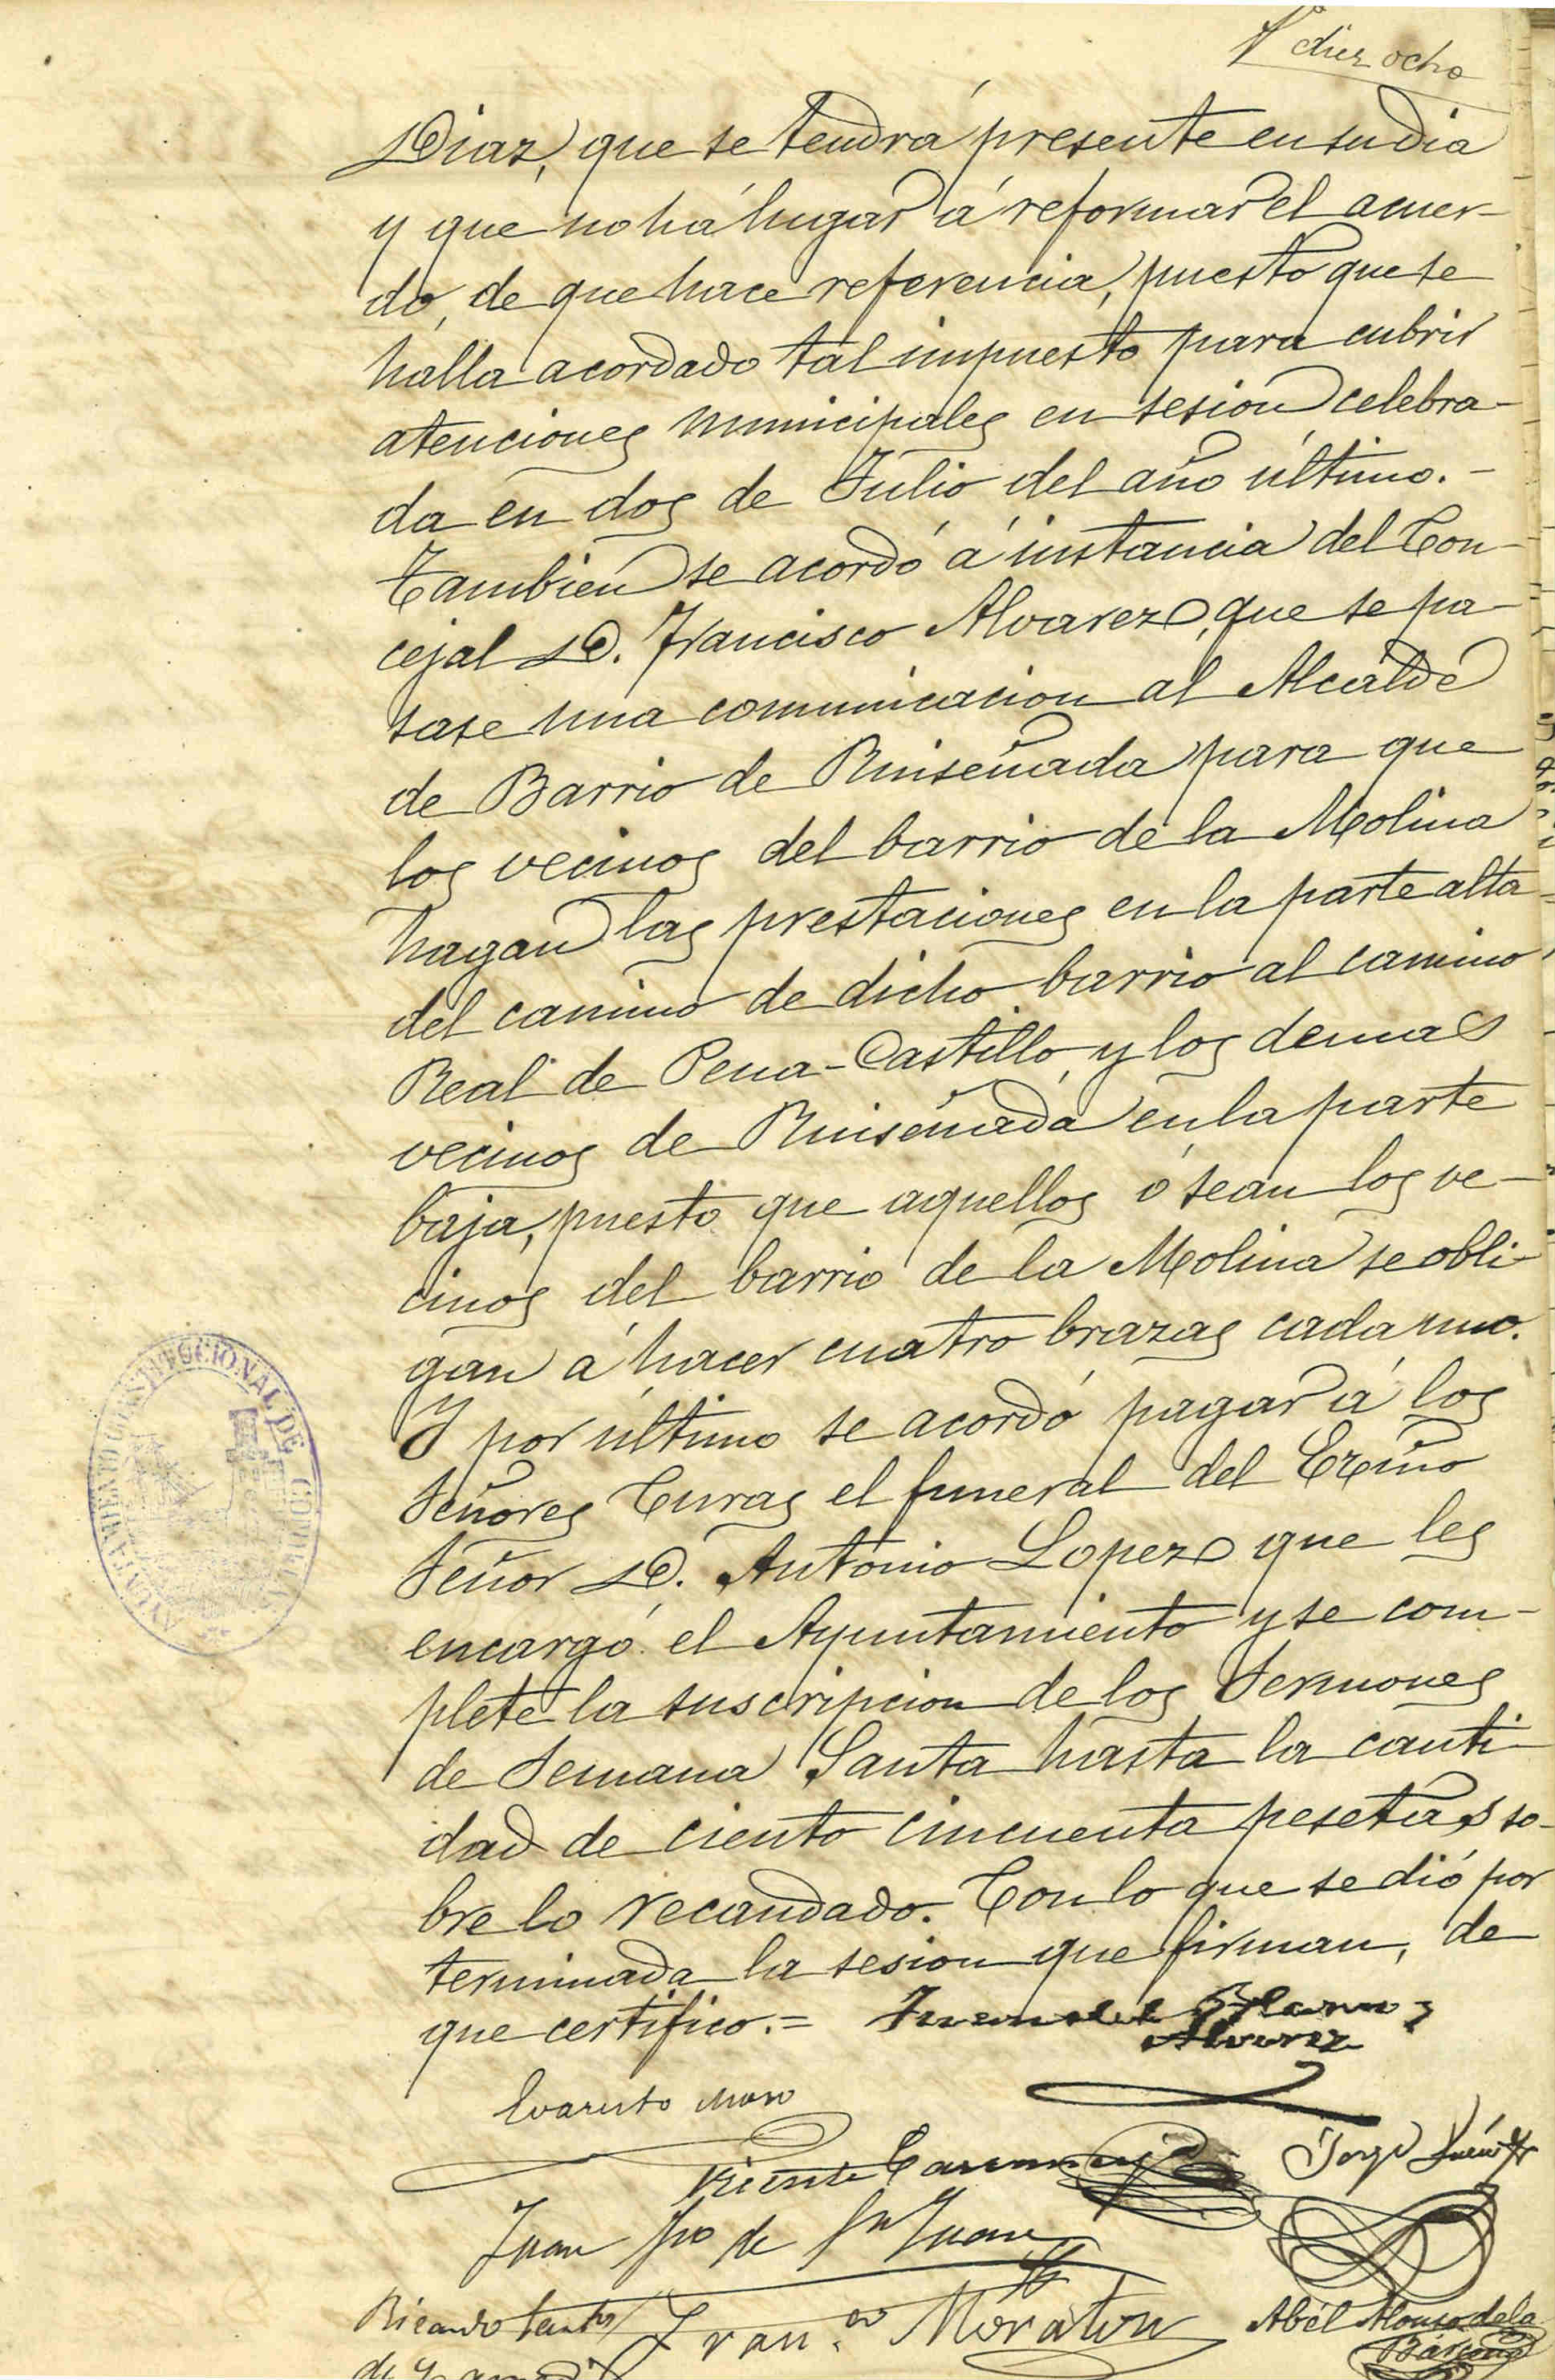 diez ocho
Diaz, que se tendrá presente en su dia
y que no há lugar á reformar el acuer-
do, de que hace referencia, puesto que se
halla acordado tal impuesto para cubrir
atenciones municipales en sesion celebra-
da en dos de Julio del año último.-
Tambien se acordó á instancia del Con-
cejal D. Francisco Alvarez, que se pa-
sase una comunicacion al Alcalde
de Barrio de Ruiseñada para que
los vecinos del barrio de la Molina
hagan las prestaciones en la parte alta
del camino de dicho barrio al camino
Real de Pena-Castillo, y los demas
vecinos de Ruiseñada en la parte
baja, puesto que aquellos ó sean los ve-
cinos del barrio de la Molina se obli-
gan á hacer cuatro brazas cada uno.
Y por último se acordó pagar á los
Señores Curas el funeral del Excmo
Señor D. Antonio Lopez que les
encargó el Ayuntamiento y se com-
plete la suscripcion de los Sermones
de Semana Santa hasta la canti-
dad de ciento cincuenta pesetas so-
bre lo recaudado. Con lo que se dió por
terminada la sesion que firman, de
que certifico.= Juan del
Alvarez
AYUNTAMIENTO CONSTITUCIONAL DE COMILLAS
Evaristo
Vicente
Jorge
Juan Jno de Sn Juan
Ricardo
Fran.co Moraton
Abél Alonso de la
Bárcena